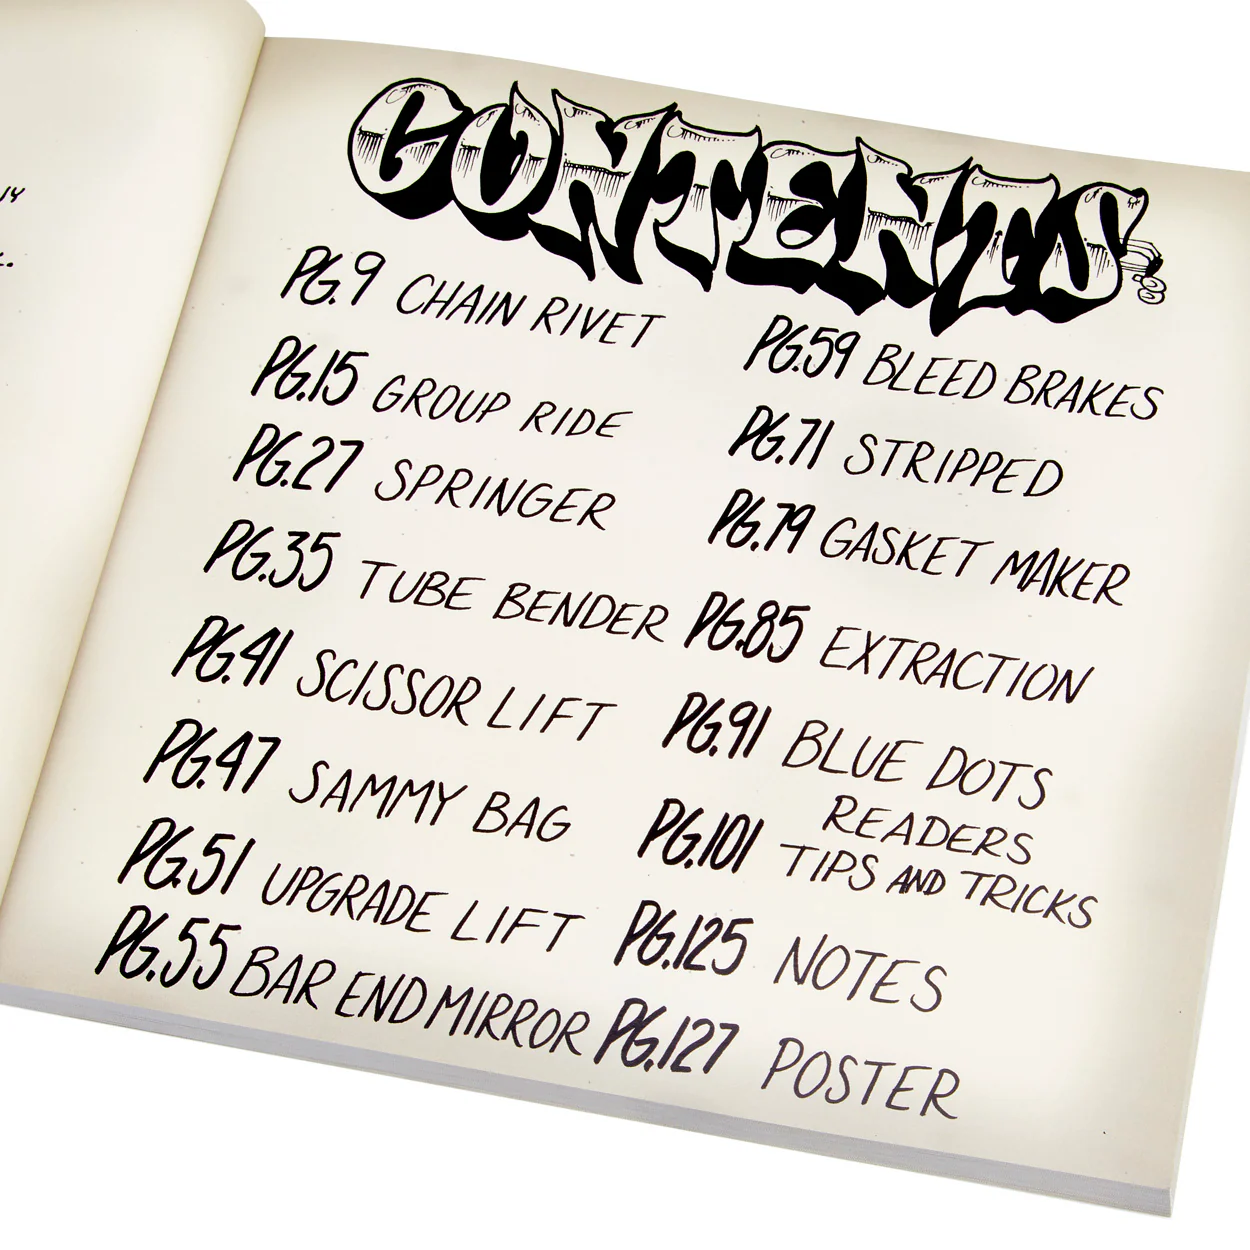 14
CONTENTS
PG.9 CHAIN RIVET
PG.15 GROUP RIDE
PG.27 SPRINGER
PG.35 TUBE BENDER
PG.41 SCISSOR LIFT
PG.47 SAMMY BAG
PG.51 UPGRADE LIFT
PG.55 BAR END MIRROR
PG.59 BLEED BRAKES
PG.71 STRIPPED
PG.79 GASKET MAKER
PG.85 EXTRACTION
PG.91 BLUE DOTS
READERS
PG.101 TIPS AND TRICKS
PG.125 NOTES
PG.127 POSTER